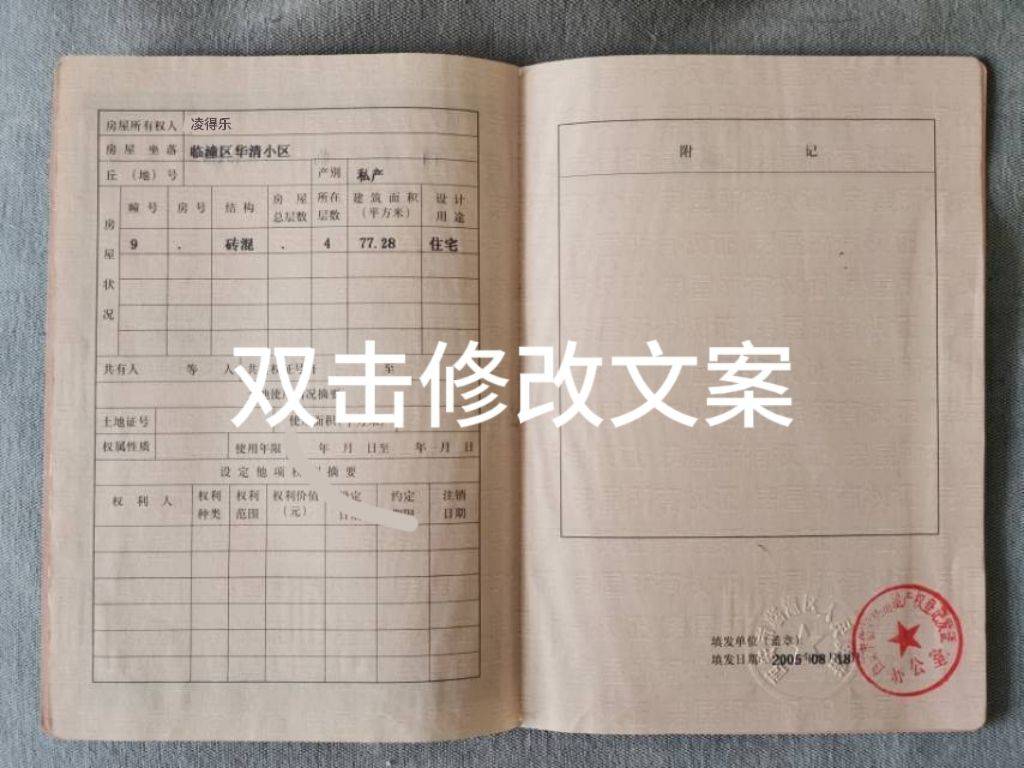 房屋所有权人 凌得乐
房屋坐落 临潼区华清小区
丘（地）号 产别 私产
房屋状况
幢号 房号 结构 房屋总层数 所在层数 建筑面积（平方米） 设计用途
9 . 砖混 . 4 77.28 住宅
双击修改文案
共有人 等 人 至
土地证号
权属性质 使用年限 年 月 日至 年 月 日
设定他项 摘要
权利人 权利种类 权利范围 权利价值（元） 约定 注销日期
附记
填发单位（盖章）
填发日期 2005年08月18
办公室